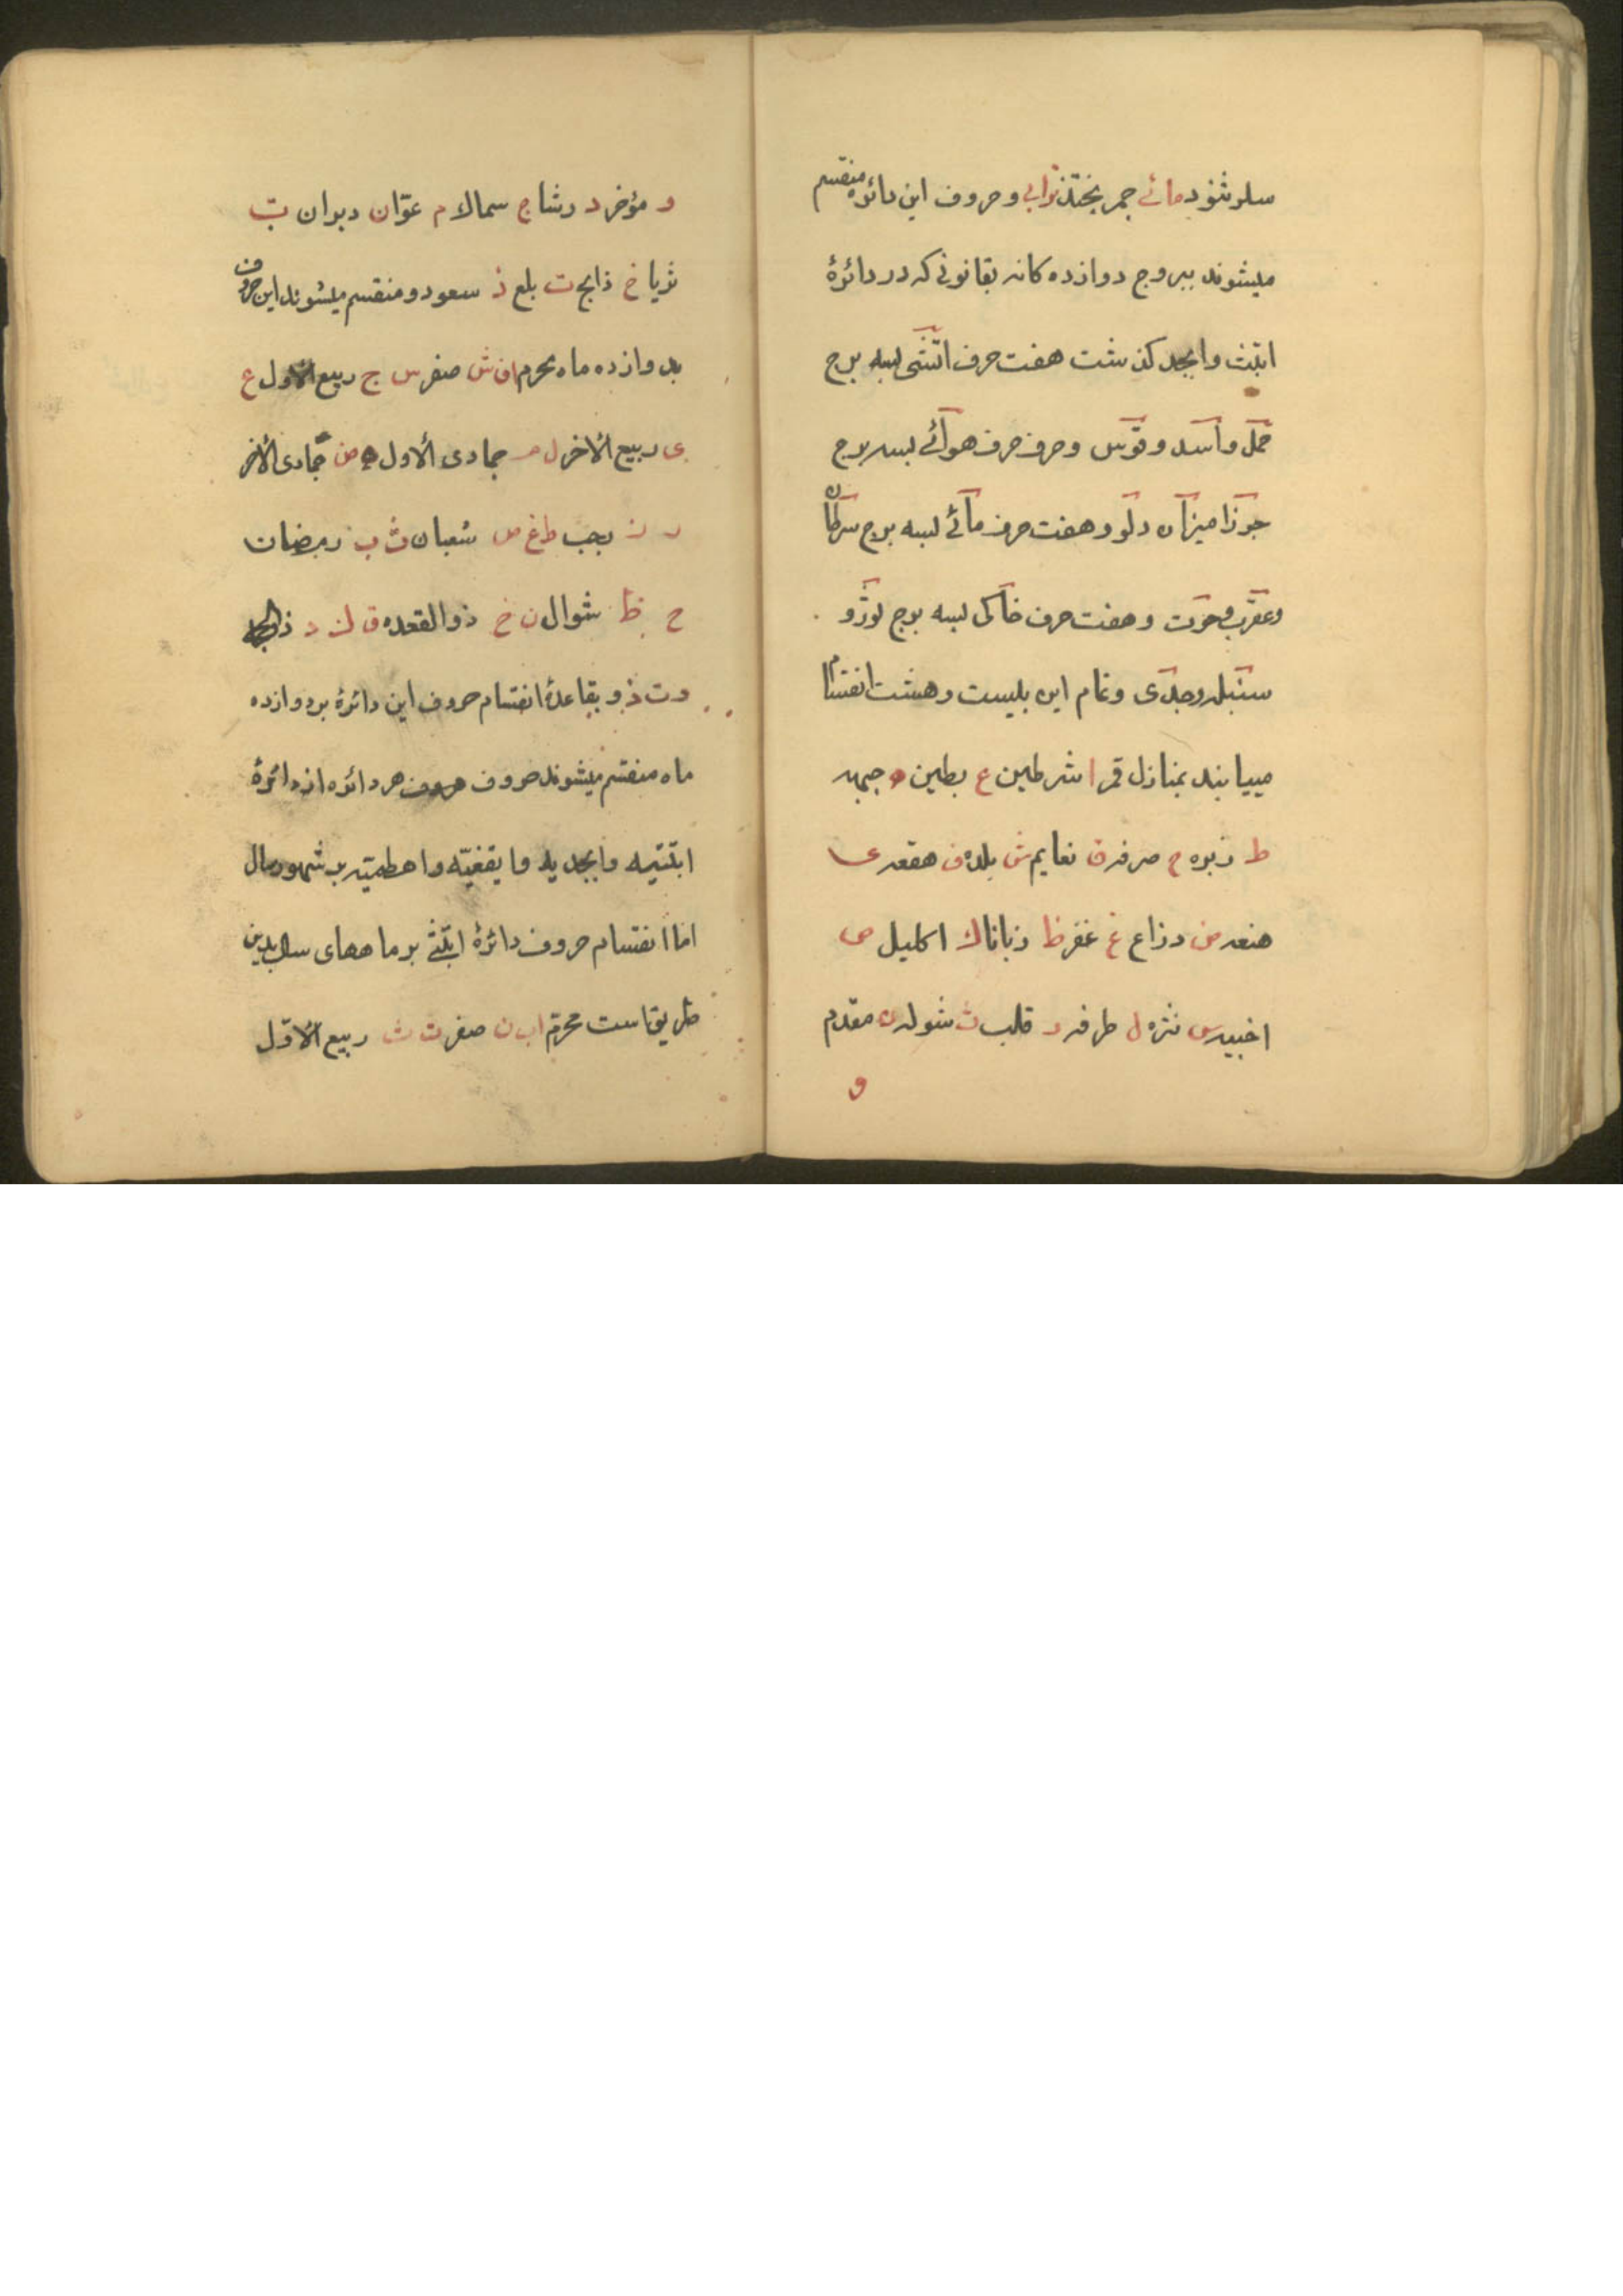 سلر ثنود مائے جمر بختذ ترابی و حروف این دائره منقسم
میشوند ببروج دوازده کانه بقانونی که در دائرۀ
ابتث و ابجد کذشت هفت حرف اتشی بسه برج
حمل و اسد و قوس و حرف حرف هوائے بسه برج
جوزا میزان دلو و هفت حرف مائے بسه برج سرطان
و عقرب و حوت و هفت حرف خاکی بسه برج ثور و
سنبله و جدی و تمام این بیست و هشت انقسام
مییابند بمنازل قمر ا شرطین ع بطین ه جبهه
ط زبره ح صرفه ق نعایم ش بلده ف هقعه ی
هنعه ض ذراع غ غفر ظ زبانا ك اکلیل ص
اخبیه س نثره ل طرفه ر قلب ث شوله ن مقدم
و
و مؤخر د رشا ج سماك م عوّا ن دبران ب
ثریا خ ذابح ت بلع ذ سعود و منقسم میشوند این حروف
بدوازده ماه محرم ا ف ش صفر س ج ربیع الاول ع
ی ربیع الاخر ل م جمادی الاول ه ض جمادی الاخر
ر ز رجب ط غ ص شعبان ث ب رمضان
ح ظ شوال ن خ ذوالقعده ق ك د ذالحجه
و ت ذ و بقاعدۀ انقسام حروف این دائرۀ بر دوازده
ماه منقسم میشوند حروف هر دائره از دائرۀ
ابتثیه و ابجدیه و ایقغیه و اهطمیه بر شهور سال
اما انقسام حروف دائرۀ ابتثے بر ماههای سال بدین
طریقست محرم ا ب ن صفر ت ث ربیع الاوّل